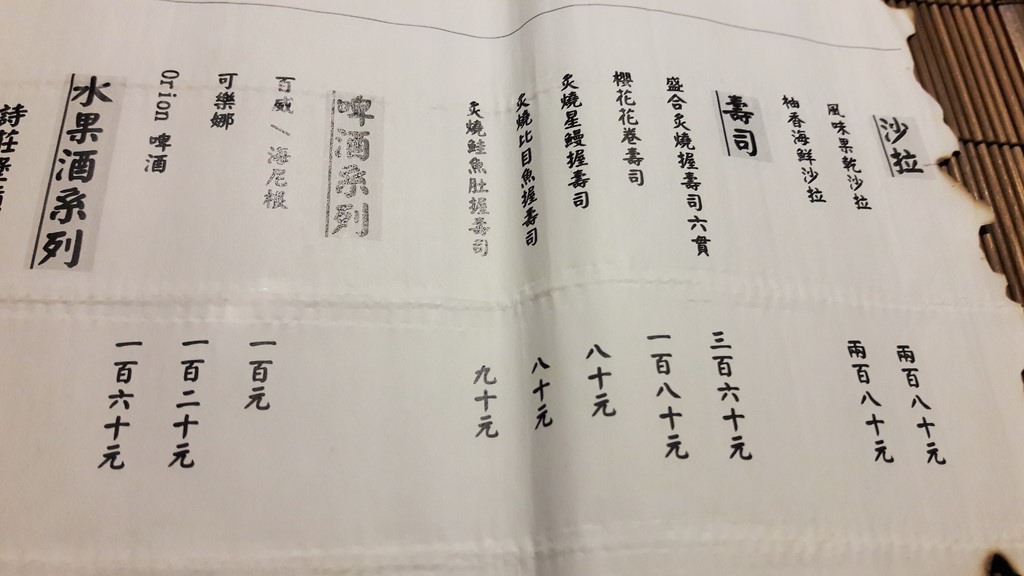 沙拉
風味果乾沙拉
兩百八十元
柚香海鮮沙拉
兩百八十元
壽司
盛合炙燒握壽司六貫
三百六十元
櫻花花卷壽司
一百八十元
炙燒星鰻握壽司
八十元
炙燒比目魚握壽司
八十元
炙燒鮭魚肚握壽司
九十元
啤酒系列
百威/海尼根
一百元
可樂娜
一百二十元
Orion 啤酒
一百六十元
水果酒系列
詩莊